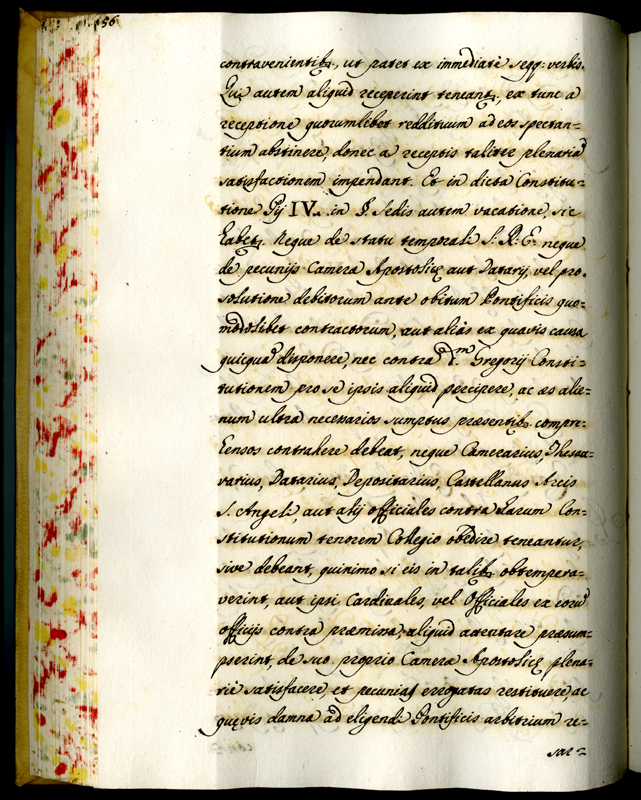 56
contravenientib., ut patet ex immediatè seqq: verbis.
Qui autem aliquid receperint teneant., ex tunc a
receptione quorumlibet reddituum ad eos spectan=
tium abstinere, donec a receptis taliter plenariā
satisfactionem impendant. Et in dicta Constitu=
tione Pij IV. in §. Sedis autem vacatione, sic
habet. Neque de statu temporali S. R. E. neque
de pecunijs Camerę Apostolicę aut Datarij vel pro
solutione debitorum ante obitum Pontificis quo=
modolibet contractorum, aut aliàs ex quavis causa
quicquā disponere, nec contra Gregorij Consti=
tutionem pro se ipsis aliquid percipere, ac æs alie=
num ultra necessarios sumptus præsentib. compre=
hensos contrahere debeat, neque Camerarius, Thesau=
rarius, Datarius, Depositarius, Castellanus Arcis
S. Angeli, aut alij officiales contra harum Con=
stitutionum tenorem Collegio obedire teneantur,
sive debeant, quinimo si eis in talib. obtempera=
verint, aut ipsi Cardinales, vel Officiales ex eorū
officijs contra præmissa aliquid attentare præsum=
pserint, de suo proprio Camerę Apostolicę plena=
riè satisfacere, et pecunias errogatas restituere, ac
quęvis damna ad eligendi Pontificis arbitrium re=
sar=